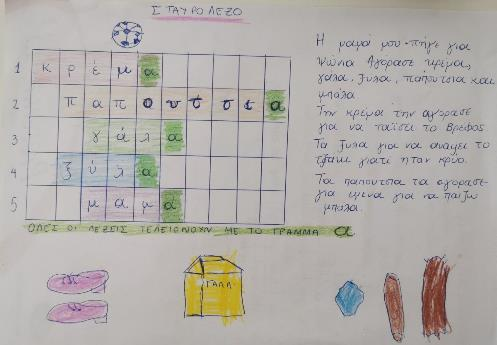 ΣΤΑΥΡΟΛΕΞΟ
1 κρέμα
2 παπουτσια
3 γάλα
4 ξύλα
5 μαμα
ΟΛΕΣ ΟΙ ΛΕΞΕΙΣ ΤΕΛΕΙΩΝΟΥΝ ΜΕ ΤΟ ΓΡΑΜΜΑ α
Η μαμά μου πήγε για
ψώνια Αγορασε κρεμα,
γαλα, ξυλα, παπουτσια και
μπάλα
Την κρέμα την αγορασε
για να ταϊσει το Βρεφος
Τα ξυλα για να αναψει το
τζακι γιατι ηταν κρύο.
Τα παπουτσια τα αγορασε
για εμενα για να παιζω
μπαλα.
ΓΑΛΑ